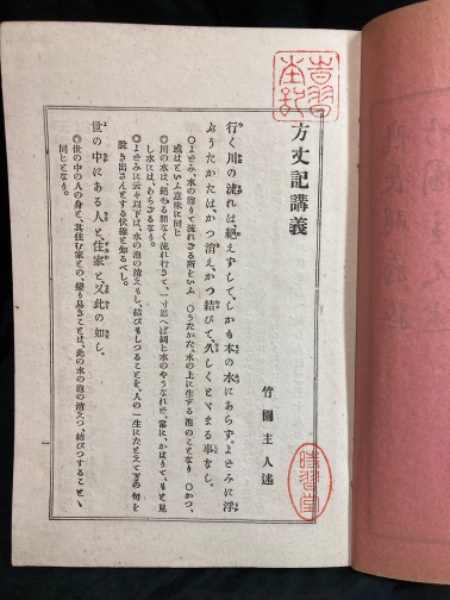 方丈記講義
竹園主人述
行く川の流れは絶えずして、しかも本の水にあらず。よどみに浮
ぶうたかたは、かつ消え、かつ結びて、久しくとゞまる事なし。
◎よどみ、水の淀りて流れざる所をいふ ○うたかた、水の上に生ずる泡のことなり ○かつ、
或はといふ意味に同じ
◎川の水は、絶ゆる間なく流れ行きて、一寸思へば同じ水のやうなれど、常に、かはりて、もと見
し水には、あらざるなり。
◎よどみに云々以下は、水の泡の消えもし、結びもしつることを、人の一生にたとへて下の句を
説き出さんとする伏線と知るべし。
世の中にある人と住家と又此の如し。
◎世の中の人の身と、其住む家との、變り易きことは、此の水の泡の消えつ、結びつすることゝ
同じとなり。
時習堂